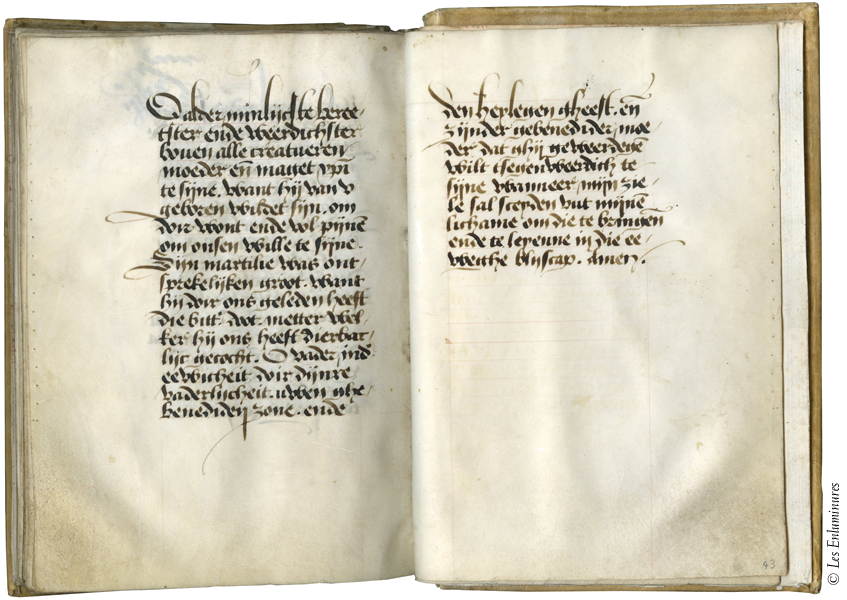 O alder minlijcste beree-
tster ende weerdichster
bouen alle creatueren
moeder en̄ maget xp̄i
te sijne. want hij van v
geboren wildet sijn. om
doir wont ende vol pijnē
om onsen wille te sijne.
Sijn martilie was ont-
sprekelijken groot. want
hij doir ons geleden heeft
die bitt' doot. metter wel-
ker hij ons heeft dierbar-
lijc gecocht. O vader, ind'
eewicheit doir dijnre
vaderlijcheit. uwen ghe-
benedijden zone. ende
den heyleuen gheest. en̄
zijnder gebenedider, moe-
der dat ghij geweerdegē
wilt tsegenweerdich te
sijne wanneer, mijn zie-
le sal sceyden uut mijnē
lichame om die te bringen
ende te leyenne in die ee-
weighe blijscap. Amen.
43
© Les Enluminures